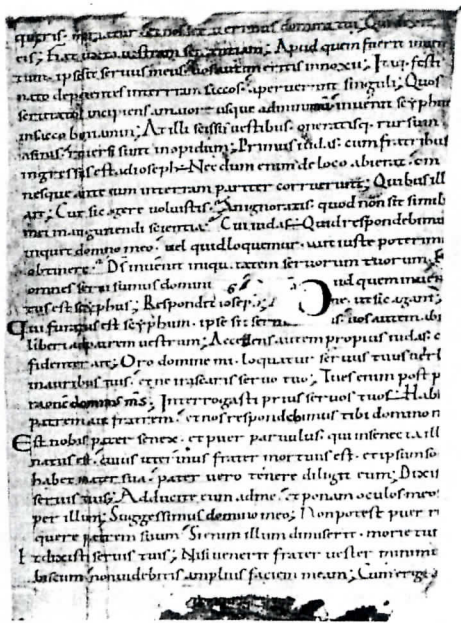 queris moriatur et nos servi erimus domini tui; Qui dixit
eis; Fiat iuxta vestram sententiam; Apud quem fuerit inven
tum ipse sit servus meus vos autem eritis innoxii; Itaq; festi
nato deponentes in terram saccos aperuerunt singuli; Quos
scrutatus incipiens a maiore usque ad minimum invenit scyphum
in sacco beniamin; At illi scissis vestibus oneratisq; rursum
asinis reversi sunt in opidum; Primus iudas cum fratribus
ingressus est ad ioseph; Nec dum enim de loco abierat om
nesque ante eum in terram pariter corruerunt; Quibus ill
ait; Cur sic agere voluistis An ignoratis quod non sit simili
mei in augurandi scientia; Cui iudas Quid respondebimus
inquit domino meo vel quid loquemur aut iuste poterimus
obtinere Ds invenit iniquitatem servorum tuorum E
omnes servi sumus domini apud quem inven
tus est scyphus; Respondit ioseph; me ut sic agam;
Qui furatus est scyphum ipse sit servus meus vos autem abi
liberi ad patrem vestrum; Accedens autem propius iudas c
fidenter ait; Oro domine mi loquatur servus tuus verb
in auribus tuis et ne irascaris servo tuo; Tu es enim post p
raonem dominus ms; Interrogasti prius servos tuos Habe
patrem aut fratrem et nos respondebimus tibi domino m
Est nobis pater senex et puer parvulus qui in senecta ill
natus est cuius uterinus frater mortuus est et ipsum so
habet mater sua pater vero tenere diligit eum; Dixisti
servis tuis; Adducite eum ad me et ponam oculos meos
per illum; Suggessimus domino meo; Non potest puer r
quere patrem suum Si enim illum dimiserit moriet
Et dixisti servis tuis; Nisi venerit frater vester minimus
biscum non videbitis amplius faciem meam; Cum ergo a